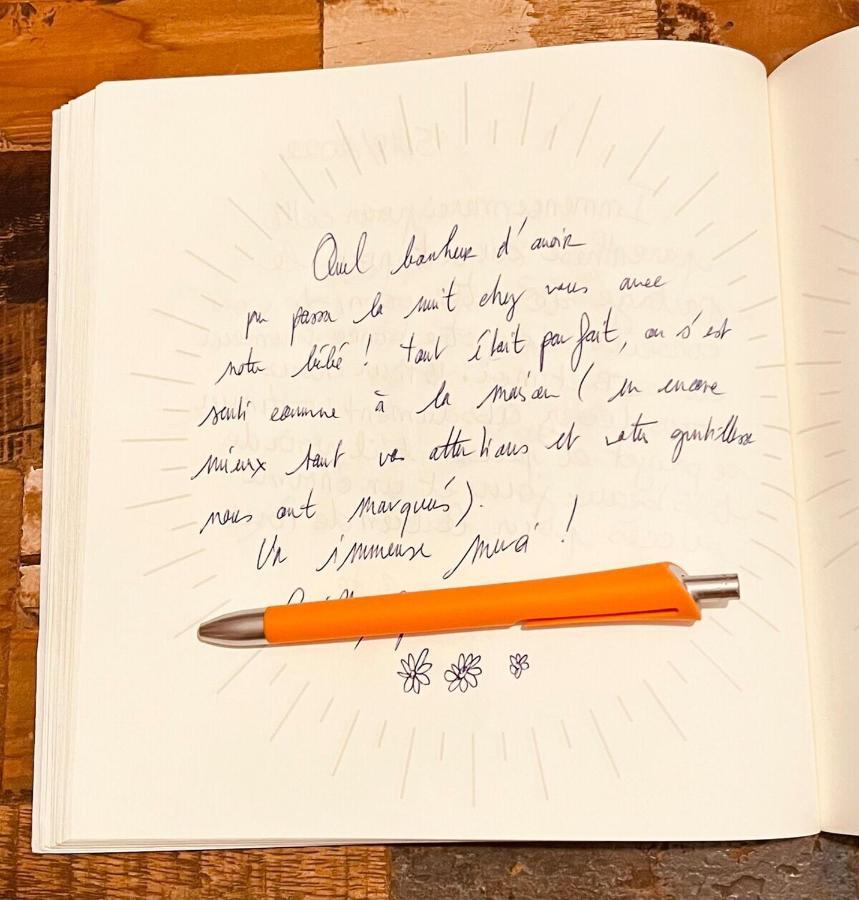 Quel bonheur d'avoir
pu passer la nuit chez vous avec
notre bébé ! tout était parfait, on s'est
senti comme à la maison (ou encore
mieux tant vos attentions et votre gentillesse
nous ont marqués).
Un immense merci !